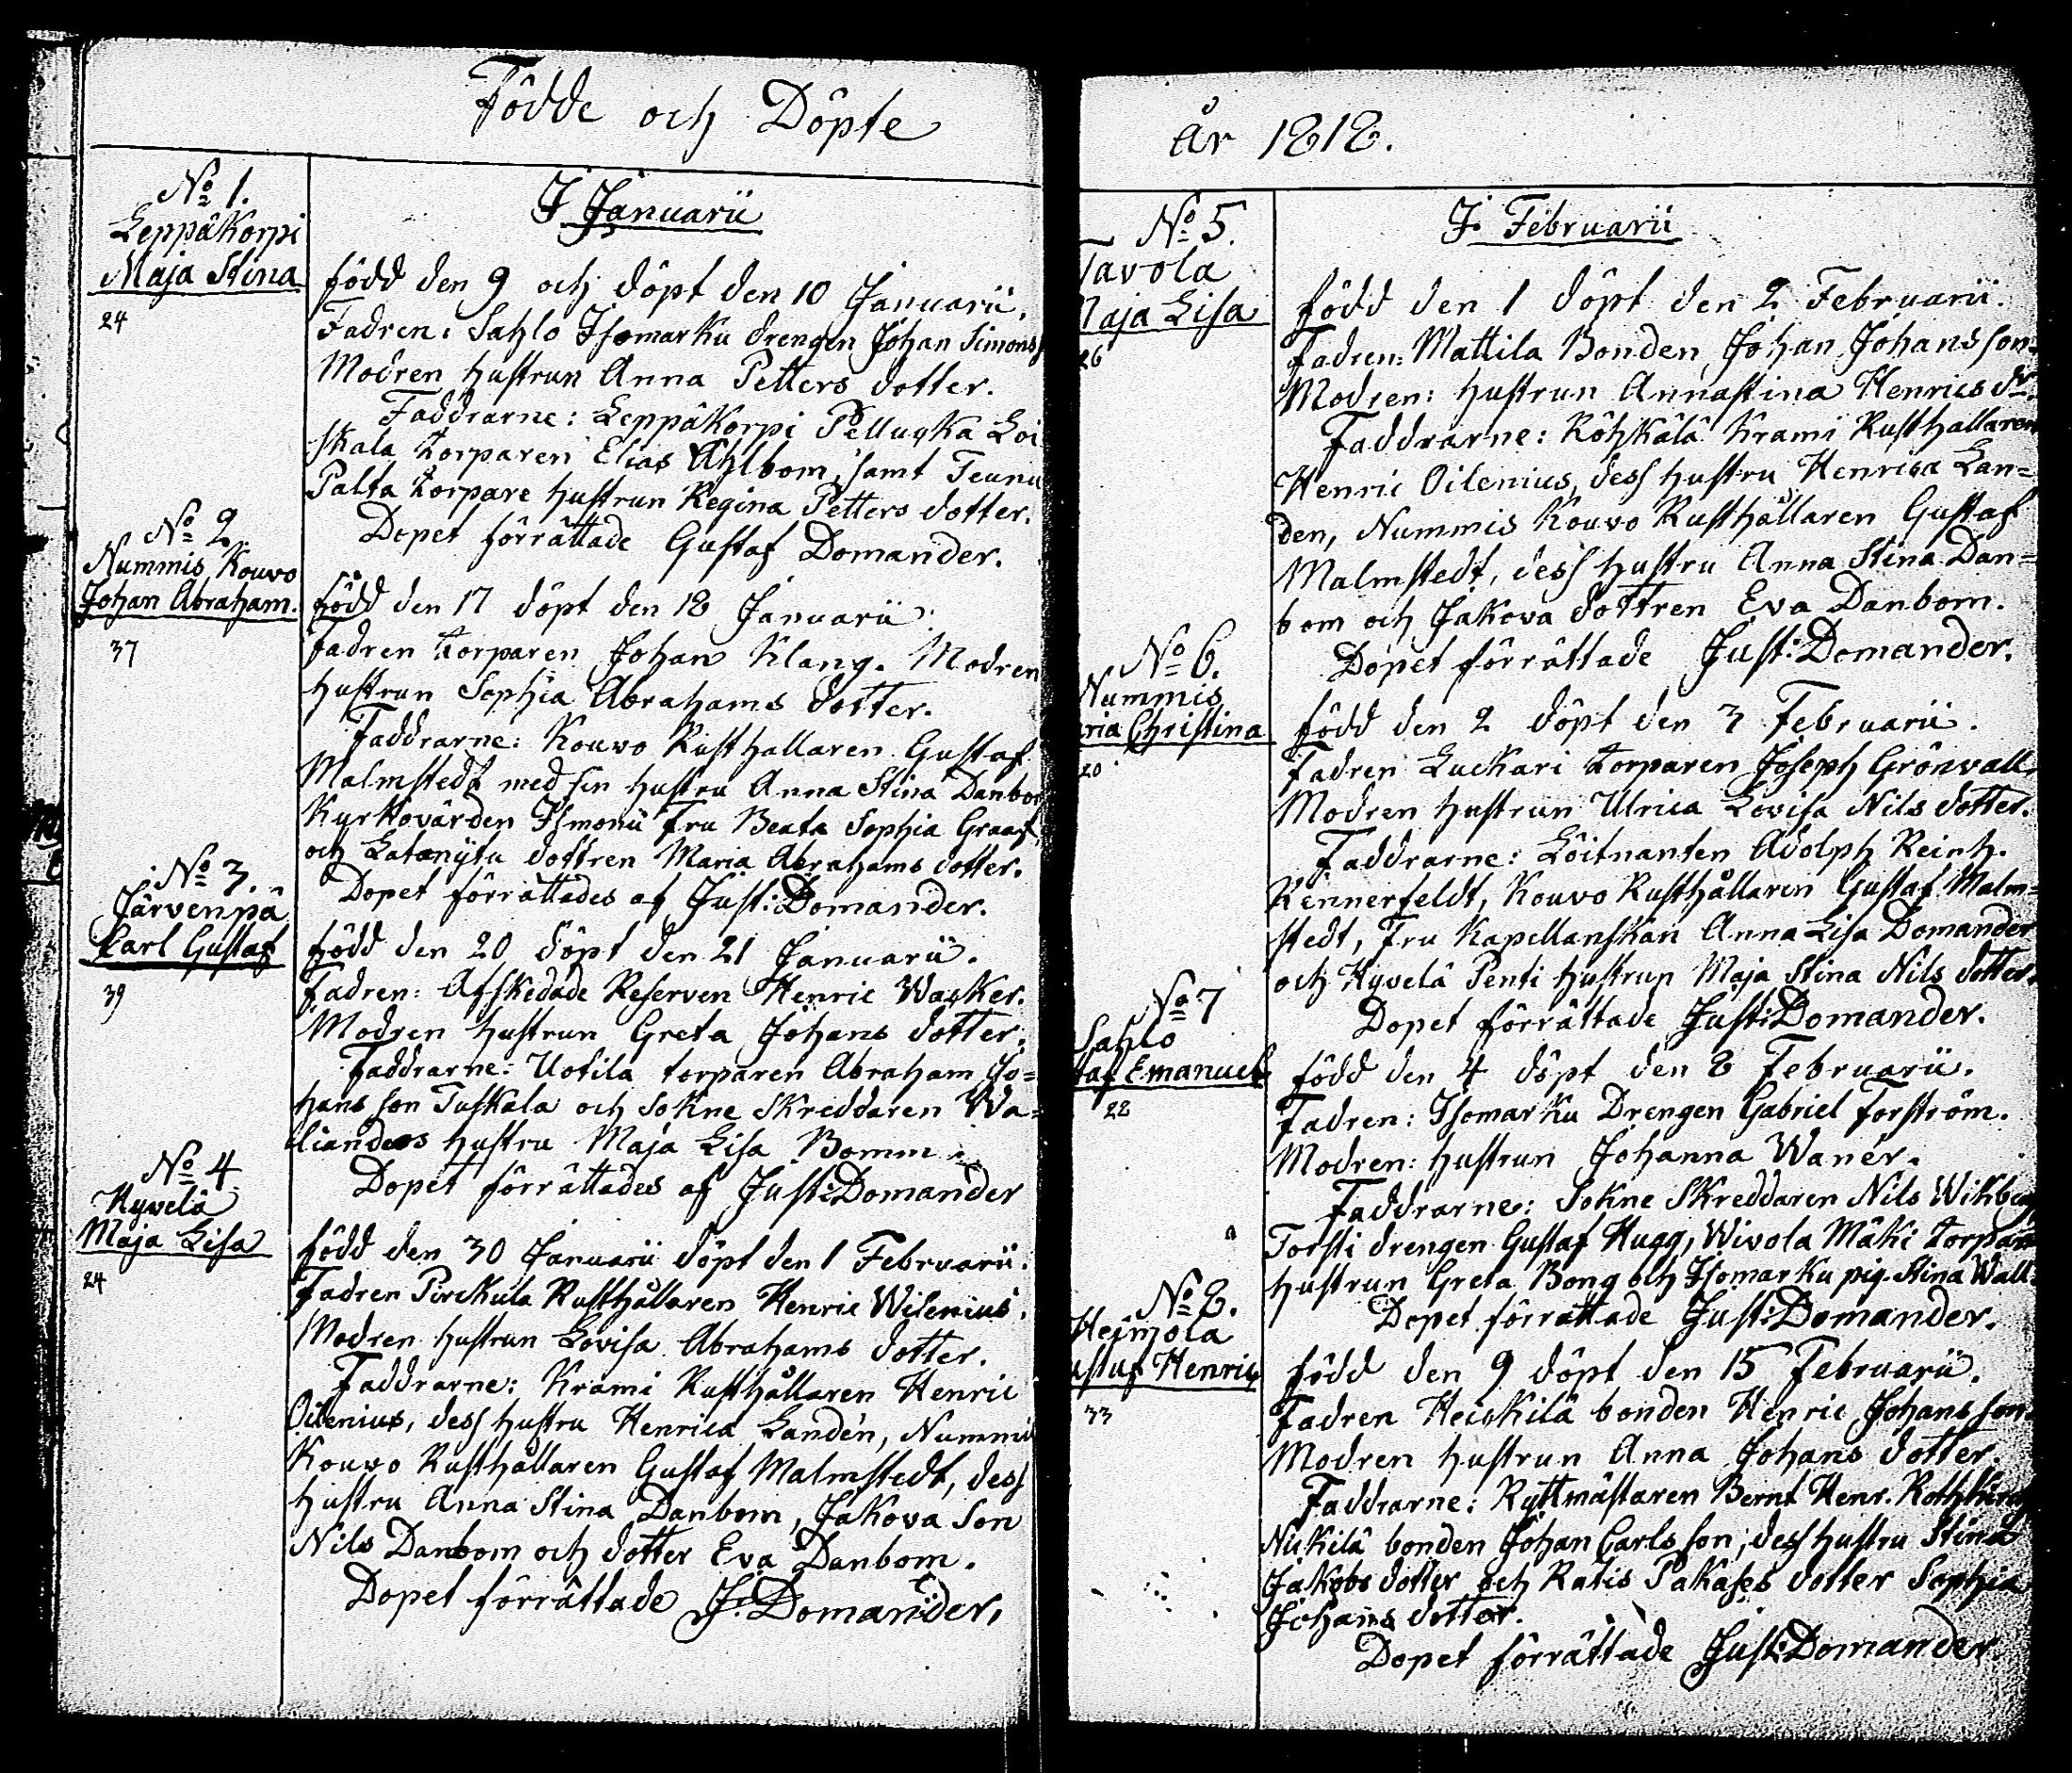 Födde och Döpte
N:o 1.
Leppäkorpi
Maja Stina
24
I Januarii
född den 9 och döpt den 10 Januarii.
Fadren: Sahlo Isomarku drengen Johan Simons
Modren hustrun Anna Petters dotter.
Faddrarne: Leppäkorpi Pellugka Loi
skala torparen Elias Ahlbom, samt Teunu
Palta torpare hustrun Regina Petters dotter.
Dopet förrättade Gustaf Domander.
N:o 2.
Nummis Kouvo
Johan Abraham.
37
född den 17 döpt den 18 Januarii.
fadren torparen Johan Klang. Modren
hustrun Sophia Abrahams dotter.
Faddrarne: Kouvo Rusthallaren Gustaf
Malmstedt med sin hustru Anna Stina Danbom
Kurkovärden Ismonii Fru Beata Sophia Graaf,
och Latanÿtu dottren Maria Abrahams dotter.
Dopet förrättades af Just: Domander.
N:o 3.
Järvenpä
Carl Gustaf
39
född den 20 döpt den 21 Januarii.
Fadren: Afskedade Reserven Henric Wacker.
Modren hustrun Greta Johans dotter.
Faddrarne: Uotila torparen Abraham Jo=
hans son Tuskala och Sokne Skreddaren Wa=
lianders hustru Maja Lisa Bomm.
Dopet förrättades af Just: Domander
N:o 4.
Hyvelä
Maja Lisa
24
född den 30 Januarii döpt den 1 Februarii.
Fadren Pirckula Rusthållaren Henric Wilenius.
Modren hustrun Lovisa Abrahams dotter.
Faddrarne: Krami Rusthållaren Henric
Oilenius, dess hustru Henrica Landén, Nummis
Kouvo Rusthållaren Gustaf Malmstedt, dess
hustru Anna Stina Danbom, Jakova Son
Nils Danbom och dotter Eva Danbom.
Dopet förrättade J. Domander,
år 1818.
N:o 5.
Tavola
Maja Lisa
26
I Februarii
född den 1 döpt den 2 Februarii.
Fadren: Mattila Bonden Johan Johansson.
Modren: hustrun Annastina Henrics dr.
Faddrarne: Röhkälä Krami Rusthallaren
Henric Oilenius, dess hustru Henrica Lan=
den, Nummis Kouvo Rusthållaren Gustaf
Malmstedt, dess hustru Anna Stina Dan=
bom och Jakova dottren Eva Danbom.
Dopet förrättade Just: Domander.
N:o 6.
Nummis
ria Christina
20
född den 2 döpt den 3 Februarii.
Fadren Luckari torparen Joseph Grönvall.
Modren hustrun Ulrica Lovisa Nils dotter.
Faddrarne: Löitnanten Adolph Reinh.
Rennerfeldt, Kouvo Rusthållaren Gustaf Malm=
stedt, Fru Kapellanskan Anna Lisa Domander
och Hyvelä Penti hustrun Maja Stina Nils dotter.
Dopet förrättade Just: Domander.
N:o 7
Sahlo
taf Emanuel
22
född den 4 döpt den 8 Februarii.
Fadren: Isomarku Drengen Gabriel Forström.
Modren: hustrun Johanna Wanér.
Faddrarne: Sokne Skreddaren Nils Wikberg
Torsti drengen Gustaf Hugg, Wivola Mäki torpare
hustrun Greta Bong och Isomarku pig. Stina Wall
Dopet förrättade Just: Domander.
N:o 8.
Heinjola
ustaf Henric
33
född den 9 döpt den 15 Februarii.
Fadren Heickilä bonden Henric Johans son.
Modren hustrun Anna Johans dotter.
Faddrarne: Ryttmästaren Bernt Henr.
Nickilä bonden Johan Carls son, dess hustru Stina
Jakobs dotter och Ratis Pakases dotter Sophia
Johans dotter.
Dopet förrättade Just: Domander.